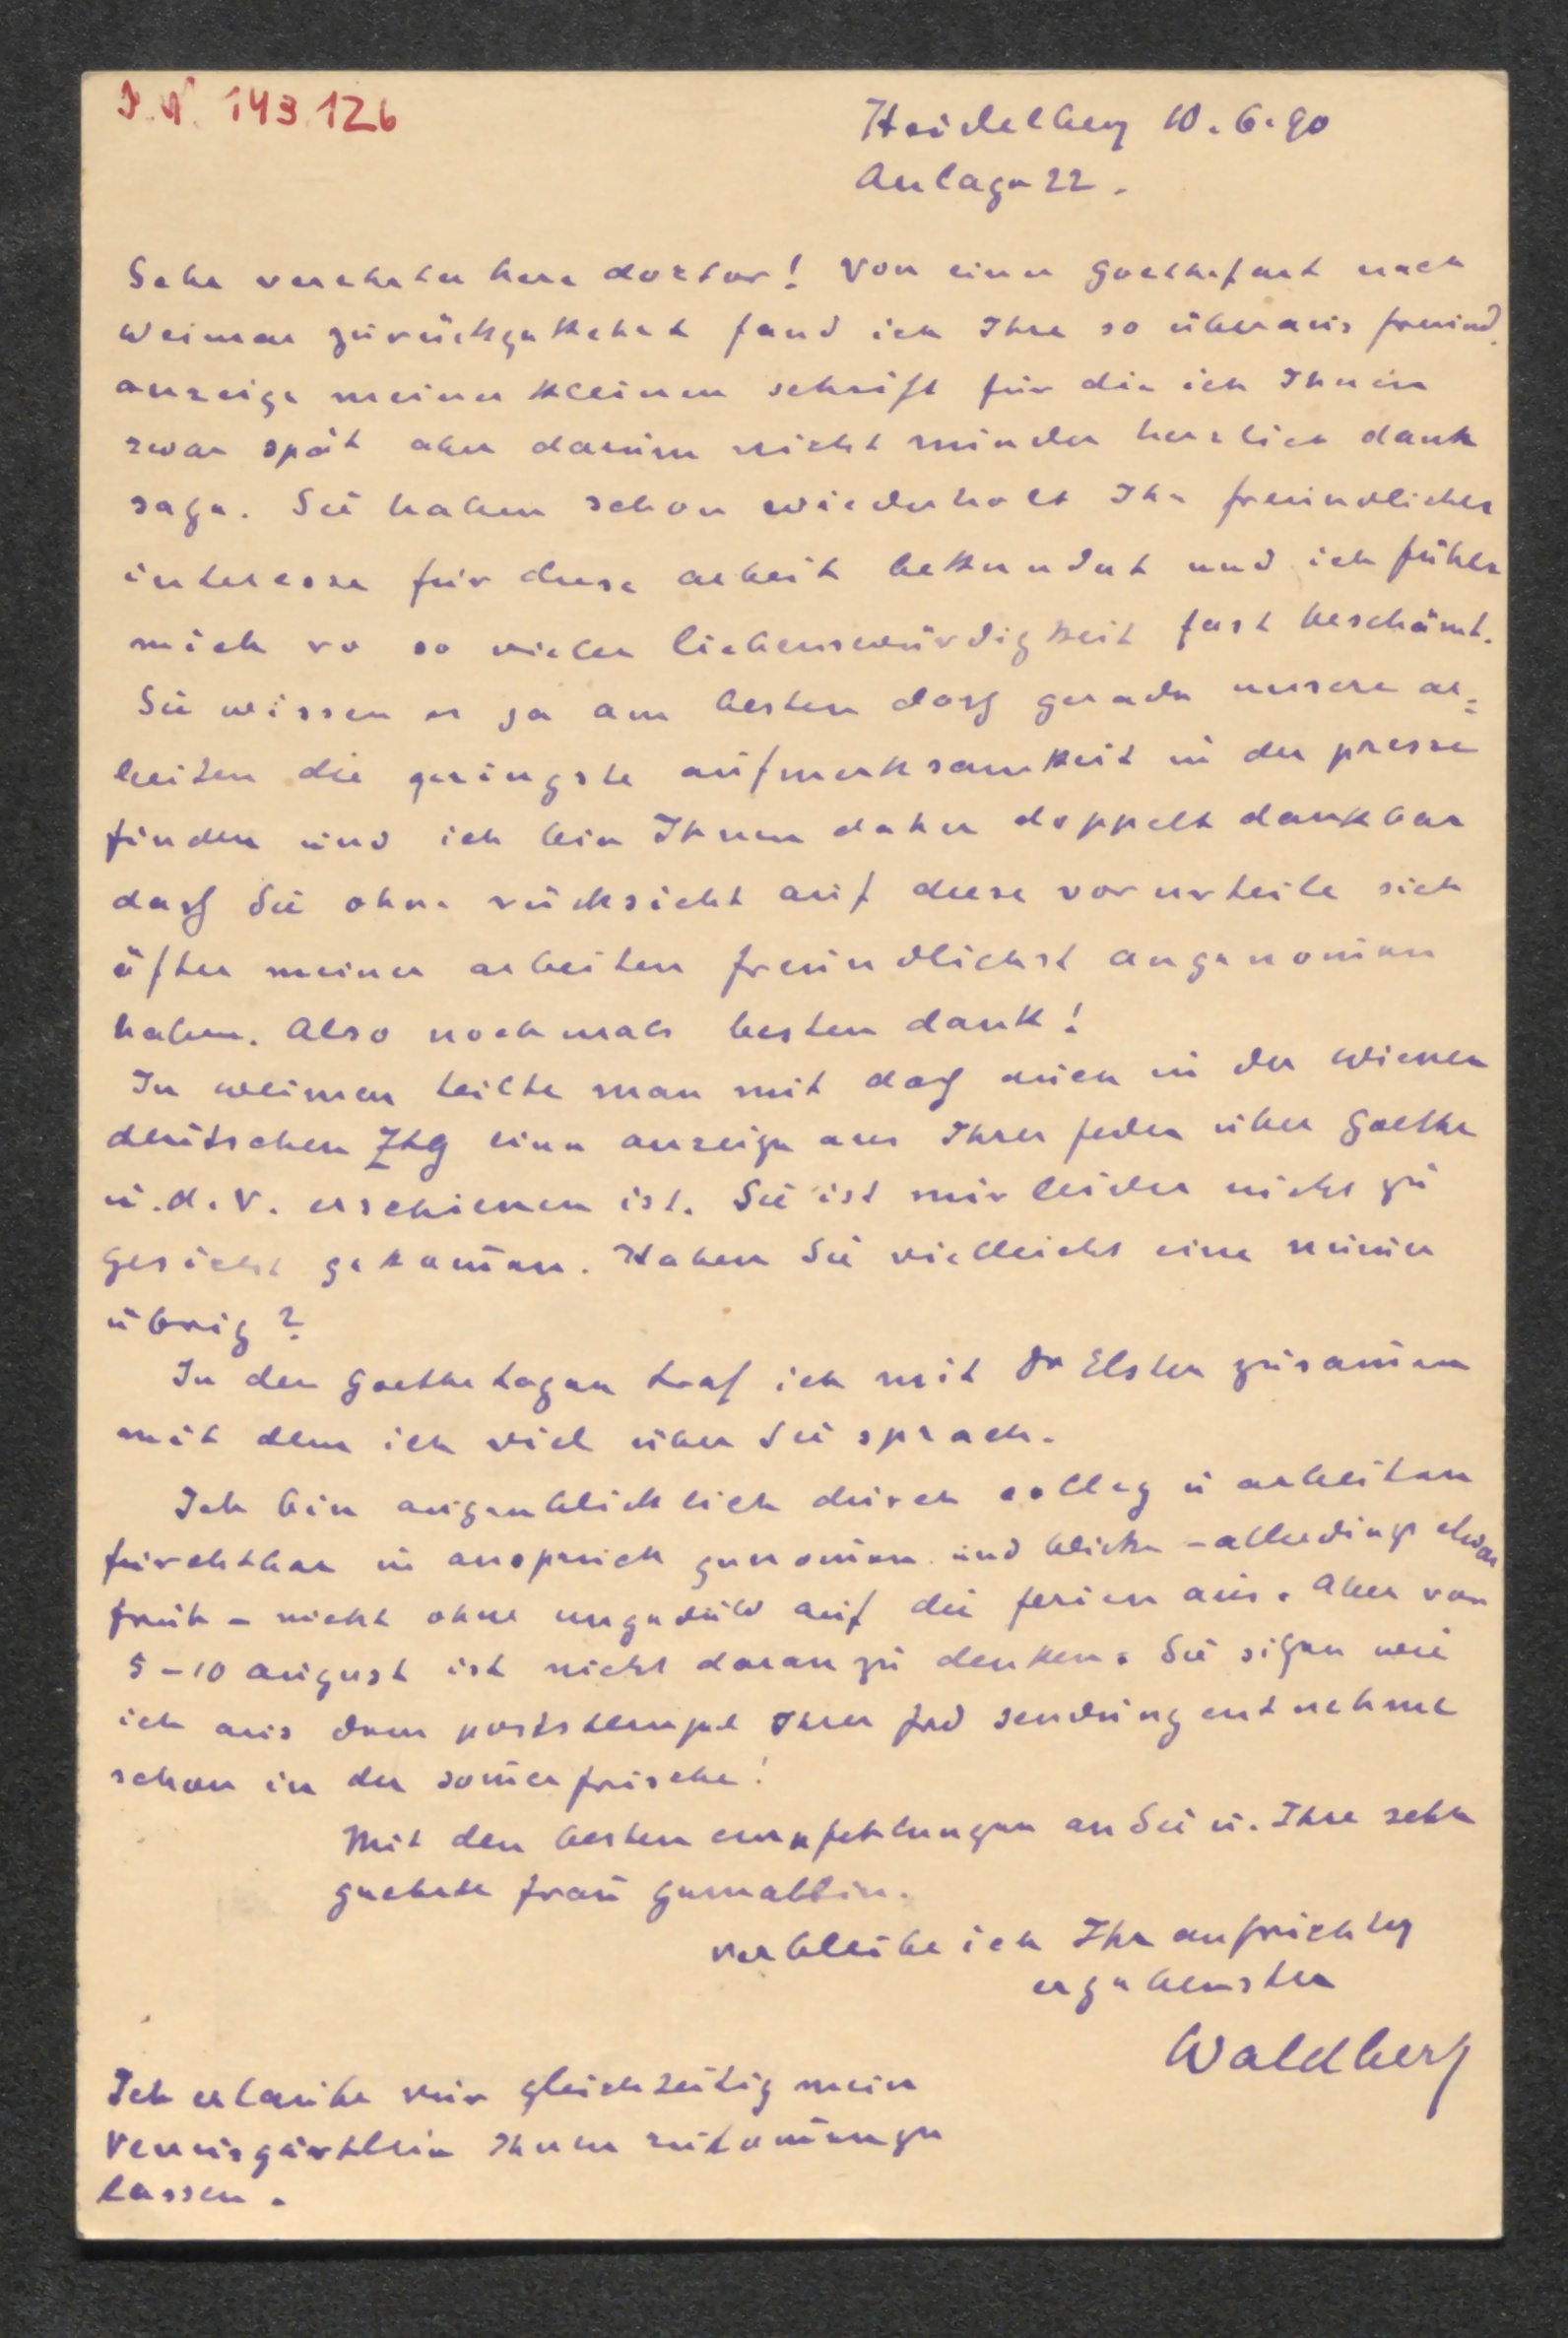 I.N. 143.126
Heidelberg 10.6.90
Anlage 22.
Sehr verehrter herr doctor! Von einer goethefart nach
Weimar zurückgekehrt fand ich Ihre so überaus freund.
anzeige meiner kleinen schrift für die ich Ihnen
zwar spät aber darum nicht minder herzlich dank
sage. Sie haben schon wiederholt Ihr freundliches
interesse für diese arbeit bekundet und ich fühle
mich vo so vieler liebenswürdigkeit fast beschämt.
Sie wissen es ja am besten dass gerade unsere ar=
beiten die geringste aufmerksamkeit in der presse
finden und ich bin Ihnen daher doppelt dankbar
dass Sie ohne rücksicht auf diese vorurteile sich
öfter meiner arbeiten freundlichst angenom̄en
haben. Also nochmals besten dank!
In weimar teilte man mit dass auch in der Wiener
deutschen Ztg eine anzeige aus Ihrer feder über Goethe
u.d.V. erschienen ist. Sie ist mir leider nicht zu
gesicht gekom̄en. Haben Sie vielleicht eine num̄er
übrig?
In den goethetagen traf ich mit Dr Elster zusam̄en
mit dem ich viel über Sie sprach.
Ich bin augenblicklich durch colleg u arbeiten
furchtbar in anspruch genom̄en und blicke – allerdings etwas
früh – nicht ohne ungeduld auf die ferien aus. Aber vor
5–10 august ist nicht daran zu denken. Sie sitzen wie
ich aus dem poststempel Ihrer frd sendung entnehme
schon in der som̄erfrische!
Mit den besten empfehlungen an Sie u. Ihre sehr
geehrte frau gemahlin.
verbleibe ich Ihr aufrichtig
ergebenster
Waldberg
Ich erlaube mir gleichzeitig mein
Venusgärtlein Ihnen zukom̄en zu
lassen.